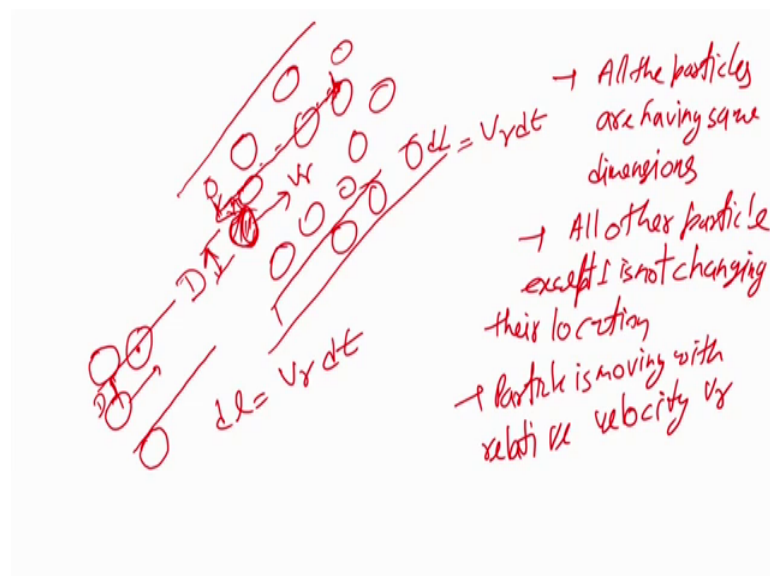 → All the particles
are having same
dimensions
dl = Vr dt
→ All other particle
except 1 is not changing
their location
→ Particle is moving with
relative velocity Vr
Vr
D
D
dl = Vr dt